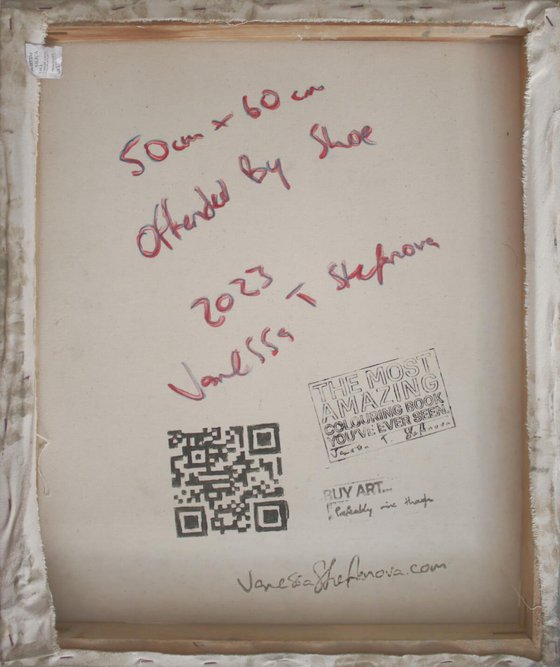 50cm x 60cm
Offended By Shoe
2023
Vanessa T Stefanova
THE MOST
AMAZING
COLOURING BOOK
YOU'VE EVER SEEN.
T. Stefanova
BUY ART...
Probably mine though
VanessaStefanova.com